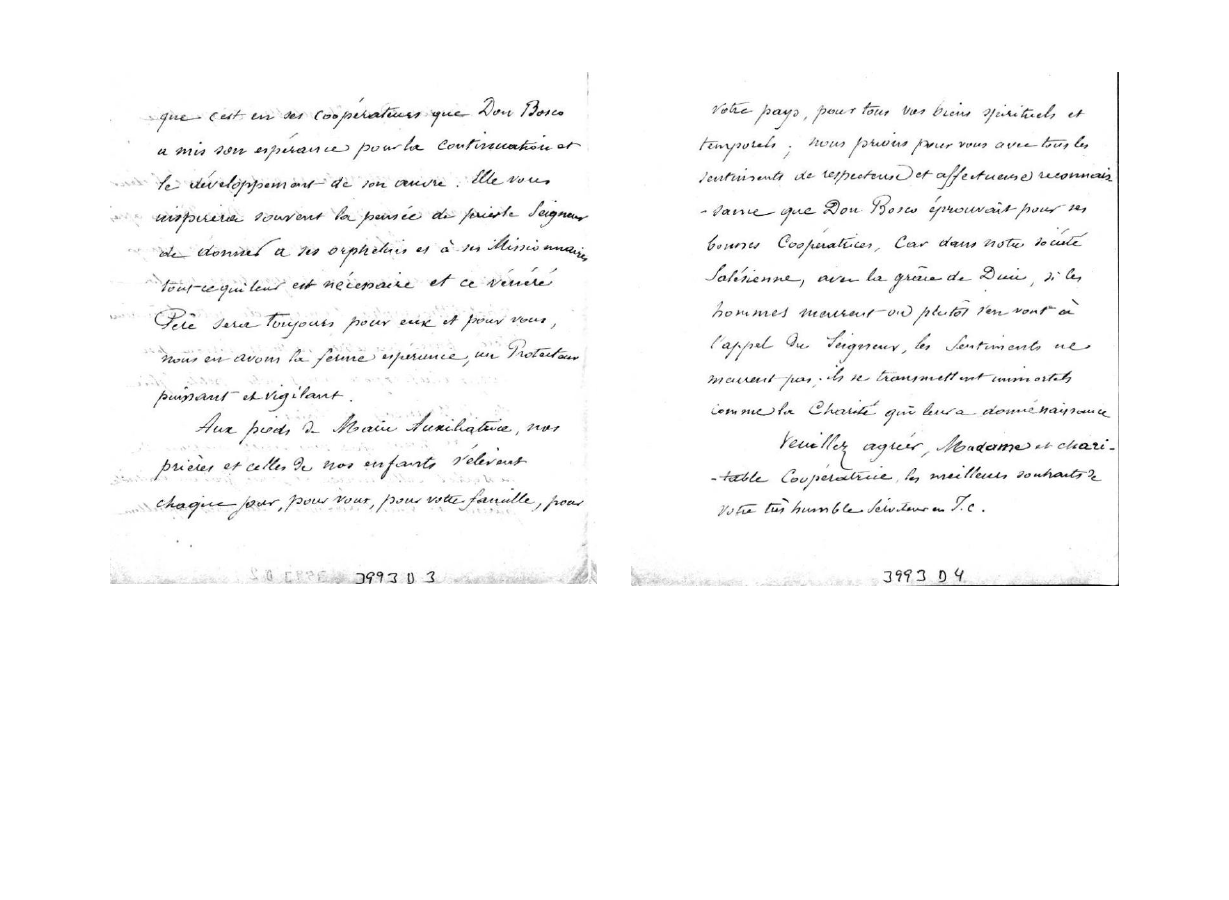 que c'est en ses coopérateurs que Don Bosco
a mis son espérance pour la continuation et
le développement de son œuvre. Elle vous
inspirera souvent la pensée de prier le Seigneur
de donner à ses orphelins et à ses Missionnaires
tout ce qui leur est nécessaire et ce vénéré
Père sera toujours pour eux et pour vous,
nous en avons la ferme espérance, un Protecteur
puissant et vigilant.
Aux pieds de Marie Auxiliatrice, nos
prières et celles de nos enfants s'élèvent
chaque jour, pour vous, pour votre famille, pour
3993 D 3
votre pays, pour tous vos biens spirituels et
temporels ; nous prions pour vous avec tous les
sentiments de respectueuse et affectueuse reconnais
-sance que Don Bosco éprouvait pour ses
bonnes Coopératrices, Car dans notre société
Salésienne, avec la grâce de Dieu, si les
hommes meurent ou plutôt s'en vont à
l'appel du Seigneur, les Sentiments ne
meurent pas ; ils se transmettent immortels
comme la Charité qui leur a donné naissance
Veuillez agréer, Madame et chari-
-table Coopératrice, les meilleurs souhaits de
votre très humble Serviteur en J.C.
3993 D 4